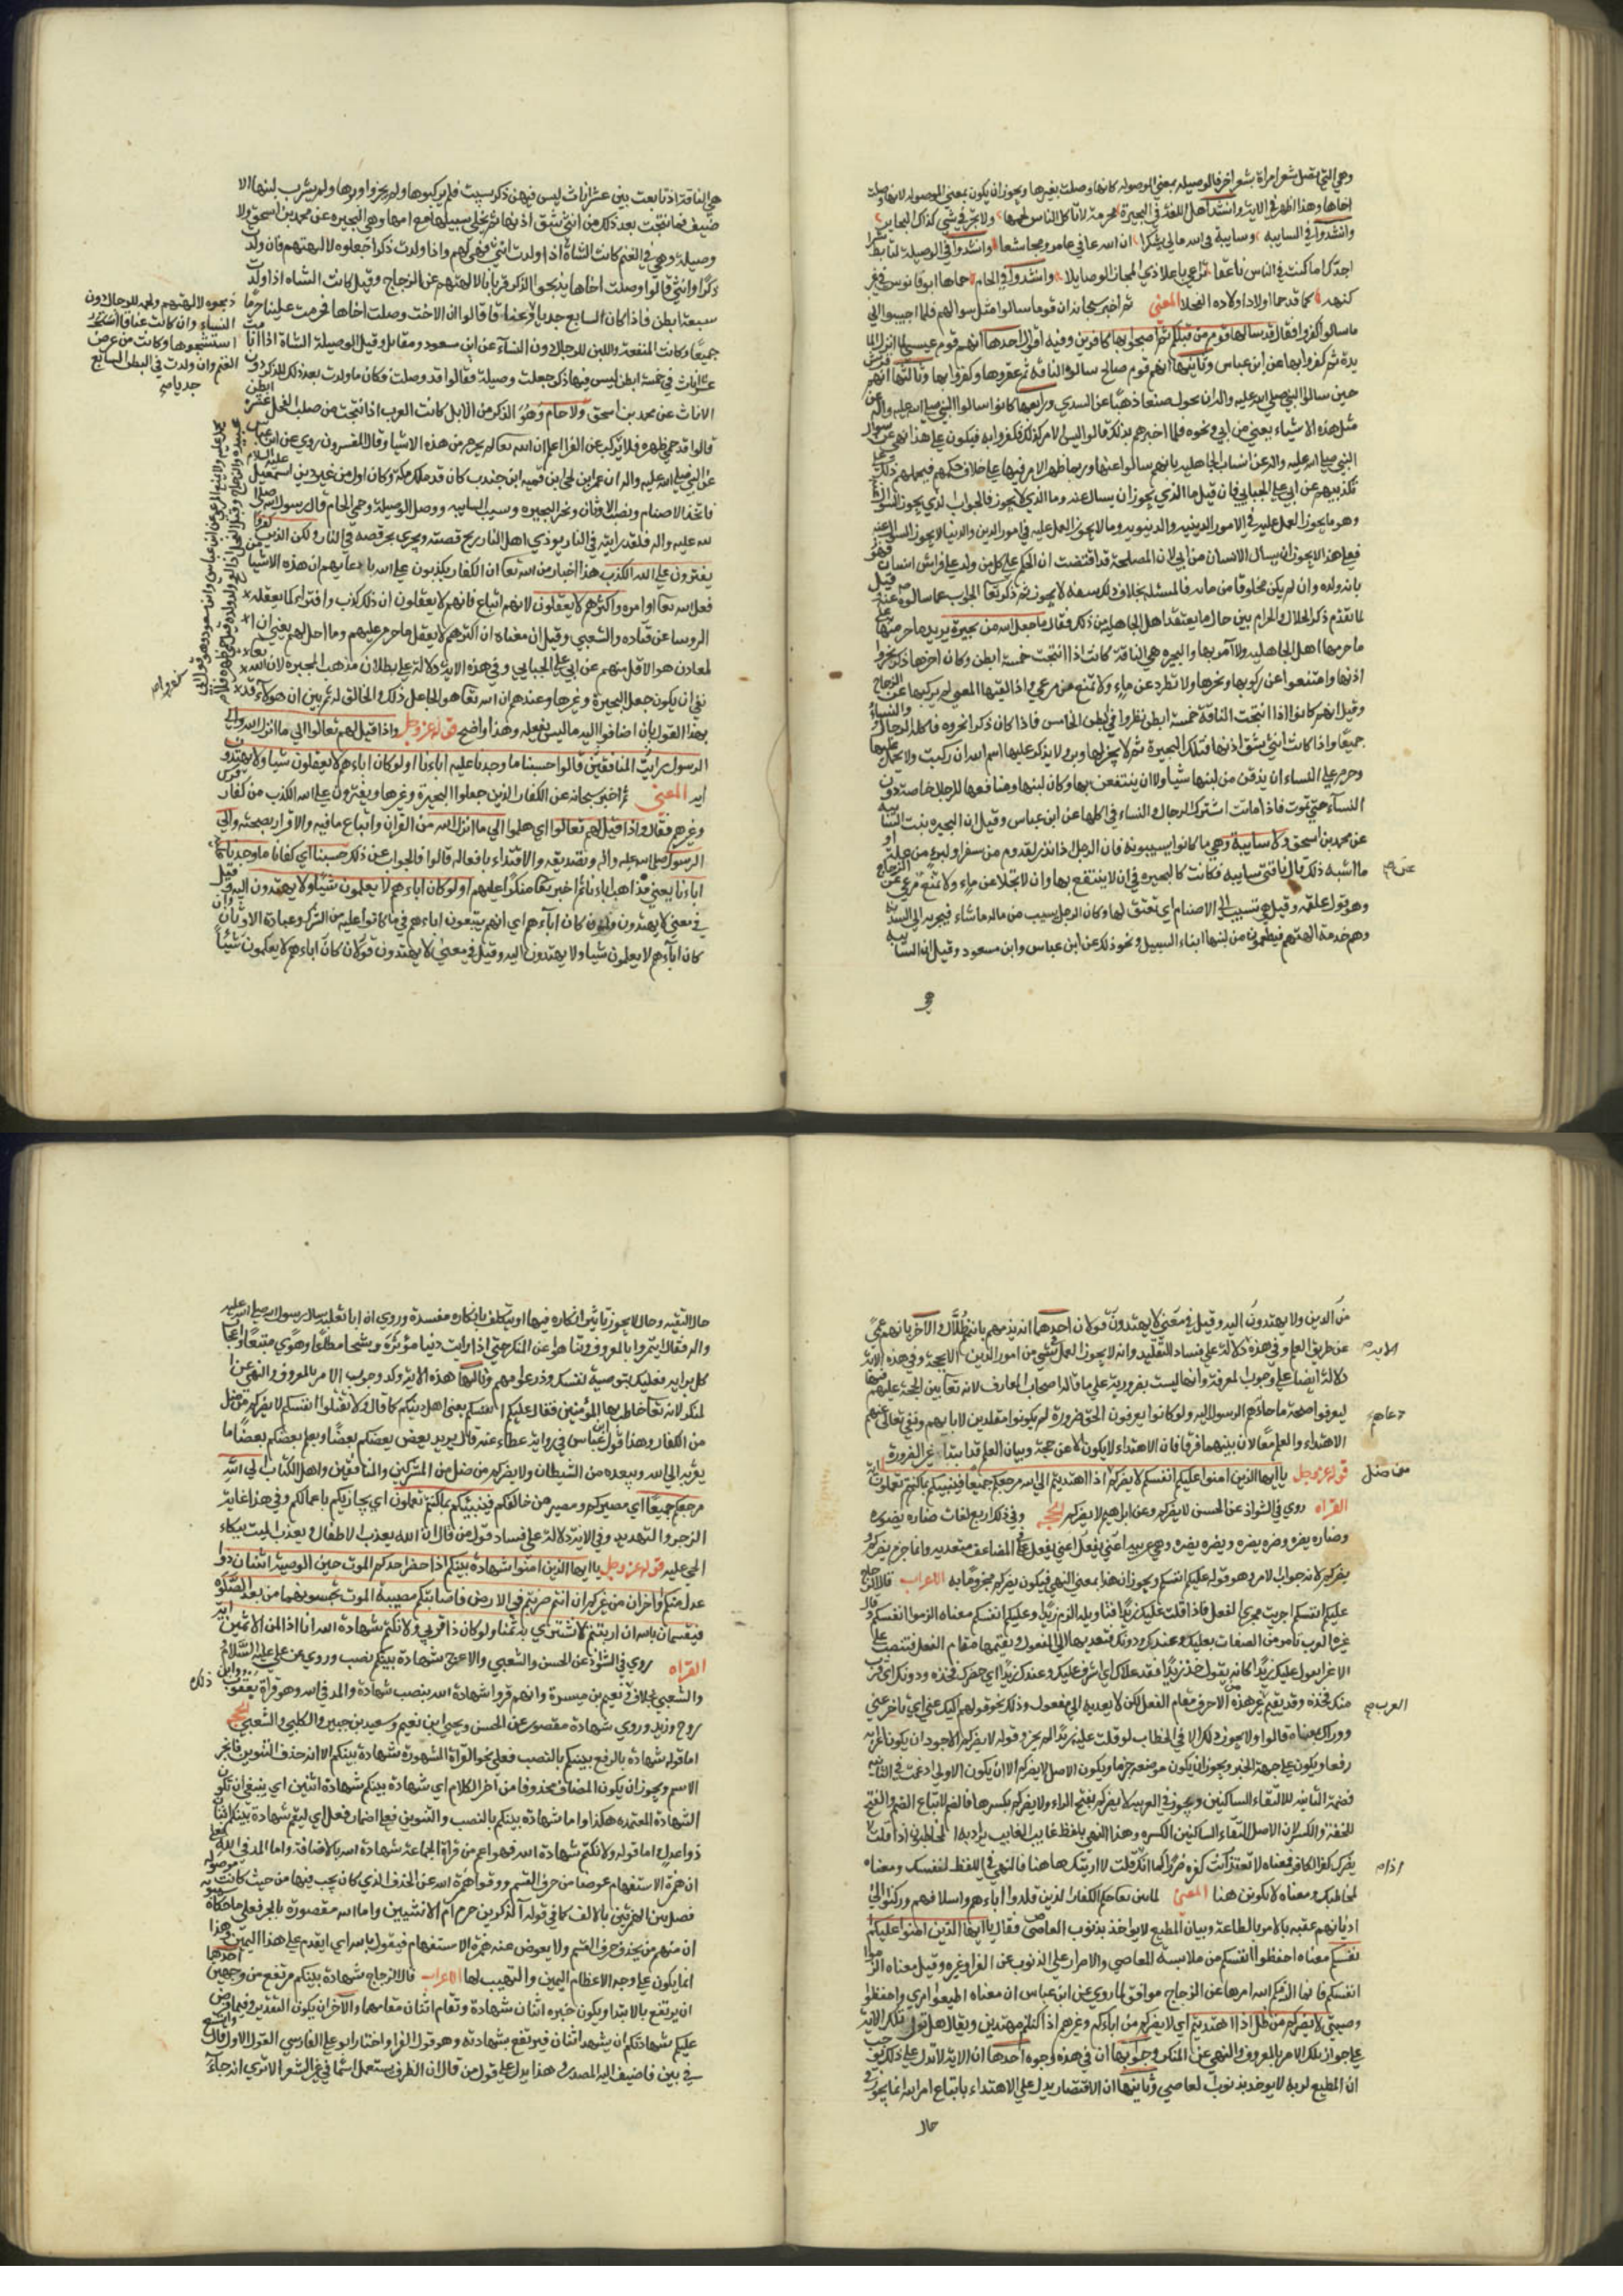 وهي التي تصل شعر امراة بشعر اخر فالوصيله بمعني الموصوله كانها وصلت بغيرها ويجوز ان يكون بمعني الموصوله لانها وصلت
اخاها وهذا اظهر في الاية وانشد اهل اللغة في البحيرة محرمة لا تاكل الناس لحمها ولا نحن في شي كذاك البحاير
وانشدوا في السايبه وسايبة مالي تشكرا ان الله عافي عامر ومجاشعا وانشدوا في الوصيلة لتابط شرا
اجدك اما كنت في الناس ناعقا تراعي باعلا ذي المجاز الوصايلا وانشدوا في الحام حماها ابو قابوس في عز
كنهه كما قد حما اولاد اولاده الفحلا المعني ثم اخبر سبحانه ان قوما سالوا مثل سوالهم فلما اجيبوا الي
ما سالوا كفروا فقال قد سالها قوم من قبلكم ثم اصبحوا بها كافرين وفيه اقوال احدها انهم قوم عيسي سالوا انزال الما
يدة ثم كفروا بها عن ابن عباس وثانيها انهم قوم صالح سالوا الناقة ثم عقروها وكفروا بها وثالثها انهم قريش
حين سالوا النبي صلي الله عليه واله ان يحول الصفا ذهبا عن السدي ورابعها كانوا سالوا النبي صلي الله عليه واله عن
مثل هذه الاشياء يعني من ابي ونحوه فلما اخبرهم بذلك قالوا ليس الامر كذلك فكفروا به فيكون علي هذا نهي عن سوال
النبي صلي الله عليه واله عن انساب الجاهليه لانهم سالوا عنها وربما ظهر الامر فيها علي خلاف حكمهم فيحملهم ذلك علي
تكذيبهم عن ابي علي الجبايي فان قيل ما الذي يجوز ان يسال عنه وما الذي لا يجوز فالجواب ان الذي يجوز السوال عنه
وهو ما يجوز العمل عليه في الامور الدينيه والدنيويه وما لا يجوز العمل عليه في امور الدين والدنيا لا يجوز السوال عنه
فعلي هذا لا يجوز ان يسال الانسان من ابي لان المصلحة قد اقتضت ان الحكم علي كل من ولد علي فراش انسان فهو
بانه ولده وان لم يكن مخلوقا من مائه فالمسئله بخلاف ذلك سفه لا يجوز ثم ذكر تعا الجواب عما سالوه عنه قيل
لما تقدم ذكر الحلال والحرام بين حال ما يعتقد اهل الجاهليه من ذلك فقال ما جعل الله من بحيرة يريد ما حرمها
ما حرمها اهل الجاهليه ولا امر بها والبحيره هي الناقة كانت اذا انتجت خمسة ابطن وكان اخرها ذكرا بحروا
اذنها وامتنعوا عن ركوبها ونحرها ولا تطرد عن ماء ولا تمنع من مرعي واذا لقيها المعيي لم يركبها عن الزجاج
وقيل انهم كانوا اذا انتجت الناقة خمسة ابطن نظروا في البطن الخامس فاذا كان ذكرا نحروه فاكله الرجال والنساء
جميعا واذا كانت انثي شقوا اذنها فتلك البحيرة ثم لا يجز لها وبر ولا يذكر عليها اسم الله ان ركبت ولا يحمل عليها
وحرم علي النساء ان يذقن من لبنها شيا ولا ان ينتفعن بها وكان لبنها ومنافعها للرجال خاصة دون
النساء حتي تموت فاذا ماتت اشترك الرجال والنساء في اكلها عن ابن عباس وقيل ان البحيره بنت السايبه
عن محمد بن اسحق ولا سايبة وهي ما كانوا يسيبونه فان الرجل اذا نذر لقدوم من سفر او لبرء من علة او
ما اشبه ذلك قال ناقتي سايبه فكانت كالبحيره في ان لا ينتفع بها وان لا تجلا عن ماء ولا تمنع من مرعي عن الزجاج
وهو قول علقمه وقيل هي تسيب الي الاصنام اي تعتق لها وكان الرجل يسيب من ماله ما شاء فيجي به الي السدنه
وهم خدمة الهتهم فيطعمون من لبنها ابناء السبيل ونحو ذلك عن ابن عباس وابن مسعود وقيل ان السايبه
هي
هي الناقة اذا تابعت بين عشر اناث ليس فيهن ذكر سيبت فلم يركبوها ولم يجزوا وبرها ولم يشرب لبنها الا
ضيف فما نتجت بعد ذلك من انثي شق اذنها ثم يخلي سبيلها مع امها وهي البحيره عن محمد بن اسحق ولا
وصيلة وهي في الغنم كانت الشاة اذا ولدت انثي فهي لهم واذا ولدت ذكرا جعلوه لالهتهم فان ولدت
ذكرا وانثي قالوا وصلت اخاها فلم يذبحوا الذكر قربانا لالهتهم عن الزجاج وقيل كانت الشاه اذا ولدت
سبعة ابطن فاذا كان السابع جديا قالوا ان الاخت وصلت اخاها فحرمت علينا فحرما
جميعا وكانت المنفعة واللبن للرجال دون النساء عن ابن مسعود ومقاتل وقيل الوصيلة الشاة اذا اتامت
عشر اناث في خمسة ابطن ليس فيها ذكر جعلت وصيلة فقالوا قد وصلت فكان ما ولدت بعد ذلك للذكور دون
الاناث عن محمد بن اسحق ولا حام وهو الذكر من الابل كانت العرب اذا انتجت من صلب الفحل عشرة ابطن
قالوا قد حمي ظهره فلا يركب عن الفرا اعلم ان الله تعا لم يحرم من هذه الاشيا وقال المفسرون روي عن ابن عباس
عن النبي صلي الله عليه واله ان عمرو بن لحي بن قمعه ابن خندب كان قد ملك مكة وكان اول من غير دين اسمعيل عليه السلام
فاتخذ الاصنام ونصب الاوثان وبحر البحيره وسيب السايبه ووصل الوصيلة وحمي الحام قال رسول الله صلي
الله عليه واله فلقد رايته في النار يوذي اهل النار ريح قصبه ويروي يجر قصبه في النار ولكن الذين كفروا
يفترون علي الله الكذب هذا اخبار من الله تعا ان الكفار يكذبون علي الله بادعايهم ان هذه الاشيا من
فعل الله تعا او امره واكثرهم لا يعقلون لانهم اتباع فانهم لا يعقلون ان ذلك كذب وافترا كما يعقله
الروسا عن قتاده والشعبي وقيل ان معناه ان اكثرهم لا يعقل ما حرم عليهم وما احل لهم يعني ان
المعاند هو الاقل منهم عن ابي علي الجبايي وفي هذه الاية دلالة علي بطلان مذهب المجبرة لان الله تعا
نفي ان يكون جعل البحيرة وغيرها وعندهم ان الله تعا هو الجاعل لذلك والخالق له ثم بين ان هولاء قد
بهذا القول بان اضافوا اليه ما ليس بفعله وهذا واضح قوله عز وجل واذا قيل لهم تعالوا الي ما انزل الله والي
الرسول رايت المنافقين قالوا حسبنا ما وجدنا عليه اباءنا اولو كان اباءهم لا يعقلون شيا ولا يهتدون
ايه المعني ثم اخبر سبحانه عن الكفار الذين جعلوا البحيرة وغيرها ويفترون علي الله الكذب من كفار قريش
وغيرهم فقال واذا قيل لهم تعالوا اي هلموا الي ما انزل الله من القران واتباع ما فيه والاقرار بصحته والي
الرسول صلي الله عليه واله وتصديقه والاقتداء بافعاله قالوا في الجواب عن ذلك حسبنا اي كفانا ما وجدنا عليه
اباءنا يعني مذاهب اباءنا ثم اخبر تعا منكرا عليهم اولو كان اباءهم لا يعلمون شيئا ولا يهتدون اليه وقيل
في معني لا يهتدون وان كان اباءهم اي انهم يتبعون اباءهم فيما كانوا عليه من الشرك وعبادة الاوثان وان
كان اباءهم لا يعلمون شيا ولا يهتدون اليه وقيل في معني لا يهتدون قولان كان اباءهم لا يعلمون شيئا
ذبحوه لالهتهم ولحمه للرجال دون
النساء وان كانت عناقا
استنشحوها وكانت من عرض
الغنم وان ولدت في البطن السابع
جديا
من الدين ولا يهتدون اليه وقيل في معني لا يهتدون قولان احدهما انه يذمهم بانهم ضلال والاخر بانهم عمي
عن طريق العلم وفي هذه دلالة علي فساد التقليد وانه لا يجوز العمل في شي من امور الدين الا بحجة وفي هذه الاية
دلالة ايضا علي وجوب المعرفة وانها ليست بضرورية علي ما قاله اصحاب المعارف لانه تعا بين الحجة عليهم فيها
ليعرفوا صحة ما دعاهم الرسول اليه ولو كانوا يعرفون الحق ضرورة لم يكونوا مقلدين لابايهم ونفي تعالي عنهم
الاهتداء والعلم معا لان بينهما فرقا فان الاهتداء لا يكون الا عن حجة وبيان العلم قد ابتدا عن الضرورة
قوله عز وجل يا ايها الذين امنوا عليكم انفسكم لا يضركم اذا اهتديتم الي الله مرجعكم جميعا فينبئكم بما كنتم تعملون ايه
القراه روي في الشواذ عن الحسن لا يضركم وعن ابراهيم لا يضركم الحجه وفي ذلك اربع لغات ضاره يضوره
وضاره يضيره وضره يضره
يضركم لانه جواب الامر وهو قوله عليكم انفسكم ويجوز ان هذا بمعني النهي فيكون يضركم مجزوما به الاعراب قال الزجاج
عليكم انفسكم اجريت مجري الفعل فاذا قلت عليك زيدا فتاويله الزم زيدا وعليكم انفسكم معناه الزموا انفسكم وقال
غيره العرب تامر من الصفات بعليك وعندك ودونك فتعديها الي المفعول وتقيمها مقام الفعل فتنصب علي
الاغراء تقول عليك زيدا كانه يقول خذ زيدا فقد علاك اي اشرف عليك وعندك زيدا اي حضرك فخذه ودونك اي قرب
منك فخذه وقد يقيم غير هذه الاحرف مقام الفعل لكن لا يعديه الي مفعول وذلك نحو قولهم اليك عني اي تاخر عني
ووراك بمعناه قالوا ولا يجوز ذلك الا في الخطاب لو قلت عليه زيدا لم يجز وقوله لا يضركم الاجود ان يكون اعرابه
رفعا ويكون علي جهة الخبر ويجوز ان يكون موضعه جزما ويكون الاصل لا يضرركم الا ان يكون الاولي ادغمت في الثانيه
فضمت الثانيه لالتقاء الساكنين ويجوز في العربيه لا يضركم بفتح الراء ولا يضركم بكسرها فالضم لاتباع الضم والفتح
للخفة والكسر لان الاصل التقاء الساكنين الكسره وهذا النهي بلفظ غايب يراد به المخاطبون اذا قلت لا
يضركك كفر الكافر فمعناه لا تعتد انت كفره ضررا كما انك قلت لا اريتك هاهنا فالنهي في اللفظ لنفسك ومعناه
لمخاطبك ومعناه لا تكونن هنا المعني لما بين تعا حكم الكفار الذين قلدوا اباءهم واسلافهم وركنوا الي
اديانهم عقبه بالامر بالطاعة وبيان المطيع لا يواخذ بذنوب العاصي فقال يا ايها الذين امنوا عليكم
نفسكم معناه احفظوا انفسكم من ملابسة المعاصي والاصرار علي الذنوب عن الفرا وغيره وقيل معناه الزموا
انفسكم فانما الزمكم الله امرها عن الزجاج موافق لما روي عن ابن عباس ان معناه اطيعوا امري واحفظوا
وصيتي لا يضركم من ضل اذا اهتديتم اي لا يضركم من اباءكم وغيرهم اذا كنتم مهتدين ويقال هل تدل هذه الاية
علي جواز ترك الامر بالمعروف والنهي عن المنكر وجوابها ان في هذه وجوه احدها ان الاية لا تدل علي ذلك بل توجب
ان المطيع لربه لا يواخذ بذنوب العاصي وثانيها ان الاقتصار يدل علي الاهتداء باتباع امر الله انما يجوز في
حال
الاية
دعاهم
من ضل
العرب
حال التقيه وحال لا يجوز تاثير انكاره فيها او يتكلف بانكاره مفسدة وروي ان ابا ثعلبه سال رسول الله صلي الله عليه
واله فقال ايتمروا بالمعروف وتناهوا عن المنكر حتي اذا رايت دنيا موثرة وشحا مطاعا وهوي متبعا واعجاب
كل براي برايه فعليك بخويصة نفسك وذر عوامهم وثالثها هذه الاية اوكد وجوب الامر بالمعروف والنهي عن
المنكر لانه تعا خاطب بها المؤمنين فقال عليكم انفسكم يعني اهل دينكم كما قال ولا تقتلوا انفسكم لا يضركم من ضل
من الكفار وهذا قول ابن عباس في رواية عطاء عنه قال يريد يعض بعضكم بعضا ويعلم بعضكم بعضا ما
يقربه الي الله ويبعده من الشيطان ولا يضركم من ضل من المشركين والمنافقين واهل الكتاب الي الله
مرجعكم جميعا اي مصيركم ومصير من خالفكم فينبئكم بما كنتم تعملون اي يجازيكم باعمالكم وفي هذا غاية
الزجر والتهديد وفي الاية دلالة علي فساد قول من قال ان الله يعذب الاطفال ويعذب الميت ببكاء
الحي عليه قوله عز وجل يا ايها الذين امنوا شهادة بينكم اذا حضر احدكم الموت حين الوصية اثنان ذوا
عدل منكم او اخران من غيركم ان انتم ضربتم في الارض فاصابتكم مصيبة الموت تحبسونهما من بعد الصلوة
فيقسمان بالله ان ارتبتم لا نشتري به ثمنا ولو كان ذا قربي ولا نكتم شهادة الله انا اذا لمن الاثمين ايه
القراه روي في الشواذ عن الحسن والشعبي والاعرج شهادة بينكم نصب وروي عن علي عليه السلام
والشعبي بخلاف ونعيم بن ميسرة وانهم قروا شهادة الله بنصب شهادة والمد في الله وهو قراة يعقوب
روح وزيد وروي شهادة مقصور عن الحسن ويحيي ابن نعيم وسعيد بن جبير والكلبي والشعبي الحجه
اما قوله شهادة بالرفع بينكم بالنصب فعلي نحو القراة المشهورة شهادة بينكم الا انه حذف التنوين فانجر
الاسم ويجوز ان يكون المضاف محذوفا من اخر الكلام اي شهادة بينكم شهادة اثنين اي ينبغي ان تكون
الشهادة المعتمده هكذا واما شهادة بينكم بالنصب والتنوين فعلي اضمار فعل اي ليقم شهادة بينكم اثنان
ذوا عدل اما قوله ولا نكتم شهادة الله فهو اعم من قراة الجماعة شهادة الله بالاضافة واما المد في الله فعلي
ان همزة الاستفهام عوضا من حرف القسم ووقوا همزة الله عن الحذف الذي كان يجب فيها من حيث كانت موصوله
فصل بين الهمزتين بالالف كما في قوله آلذكرين حرم ام الانثيين واما الله مقصورة بالجر فعلي ما حكاه سيبويه
ان منهم من يحذف حرف القسم ولا يعوض عنه همزة الاستفهام فيقول بالله اي اقدم علي هذا اليمين وهذا
انما يكون علي وجه الاعظام لليمين والتهيب لها الاعراب قال الزجاج شهادة بينكم مرتفع من وجهين احدهما
ان يرتفع بالابتدا ويكون خبره اثنان شهادة وتقام اثنان مقامها والاخر ان يكون التقدير وفيما فرض
عليكم شهادتكم ان يشهد اثنان فيرتفع بشهادته وهو قول الفرا واختار ابو علي الفارسي القول الاول قال واتسع
في بين فاضيف اليه المصدر وهذا يدل علي قول من قال ان الظرف يستعمل اسما في غير الشعر الا تري انه جاء